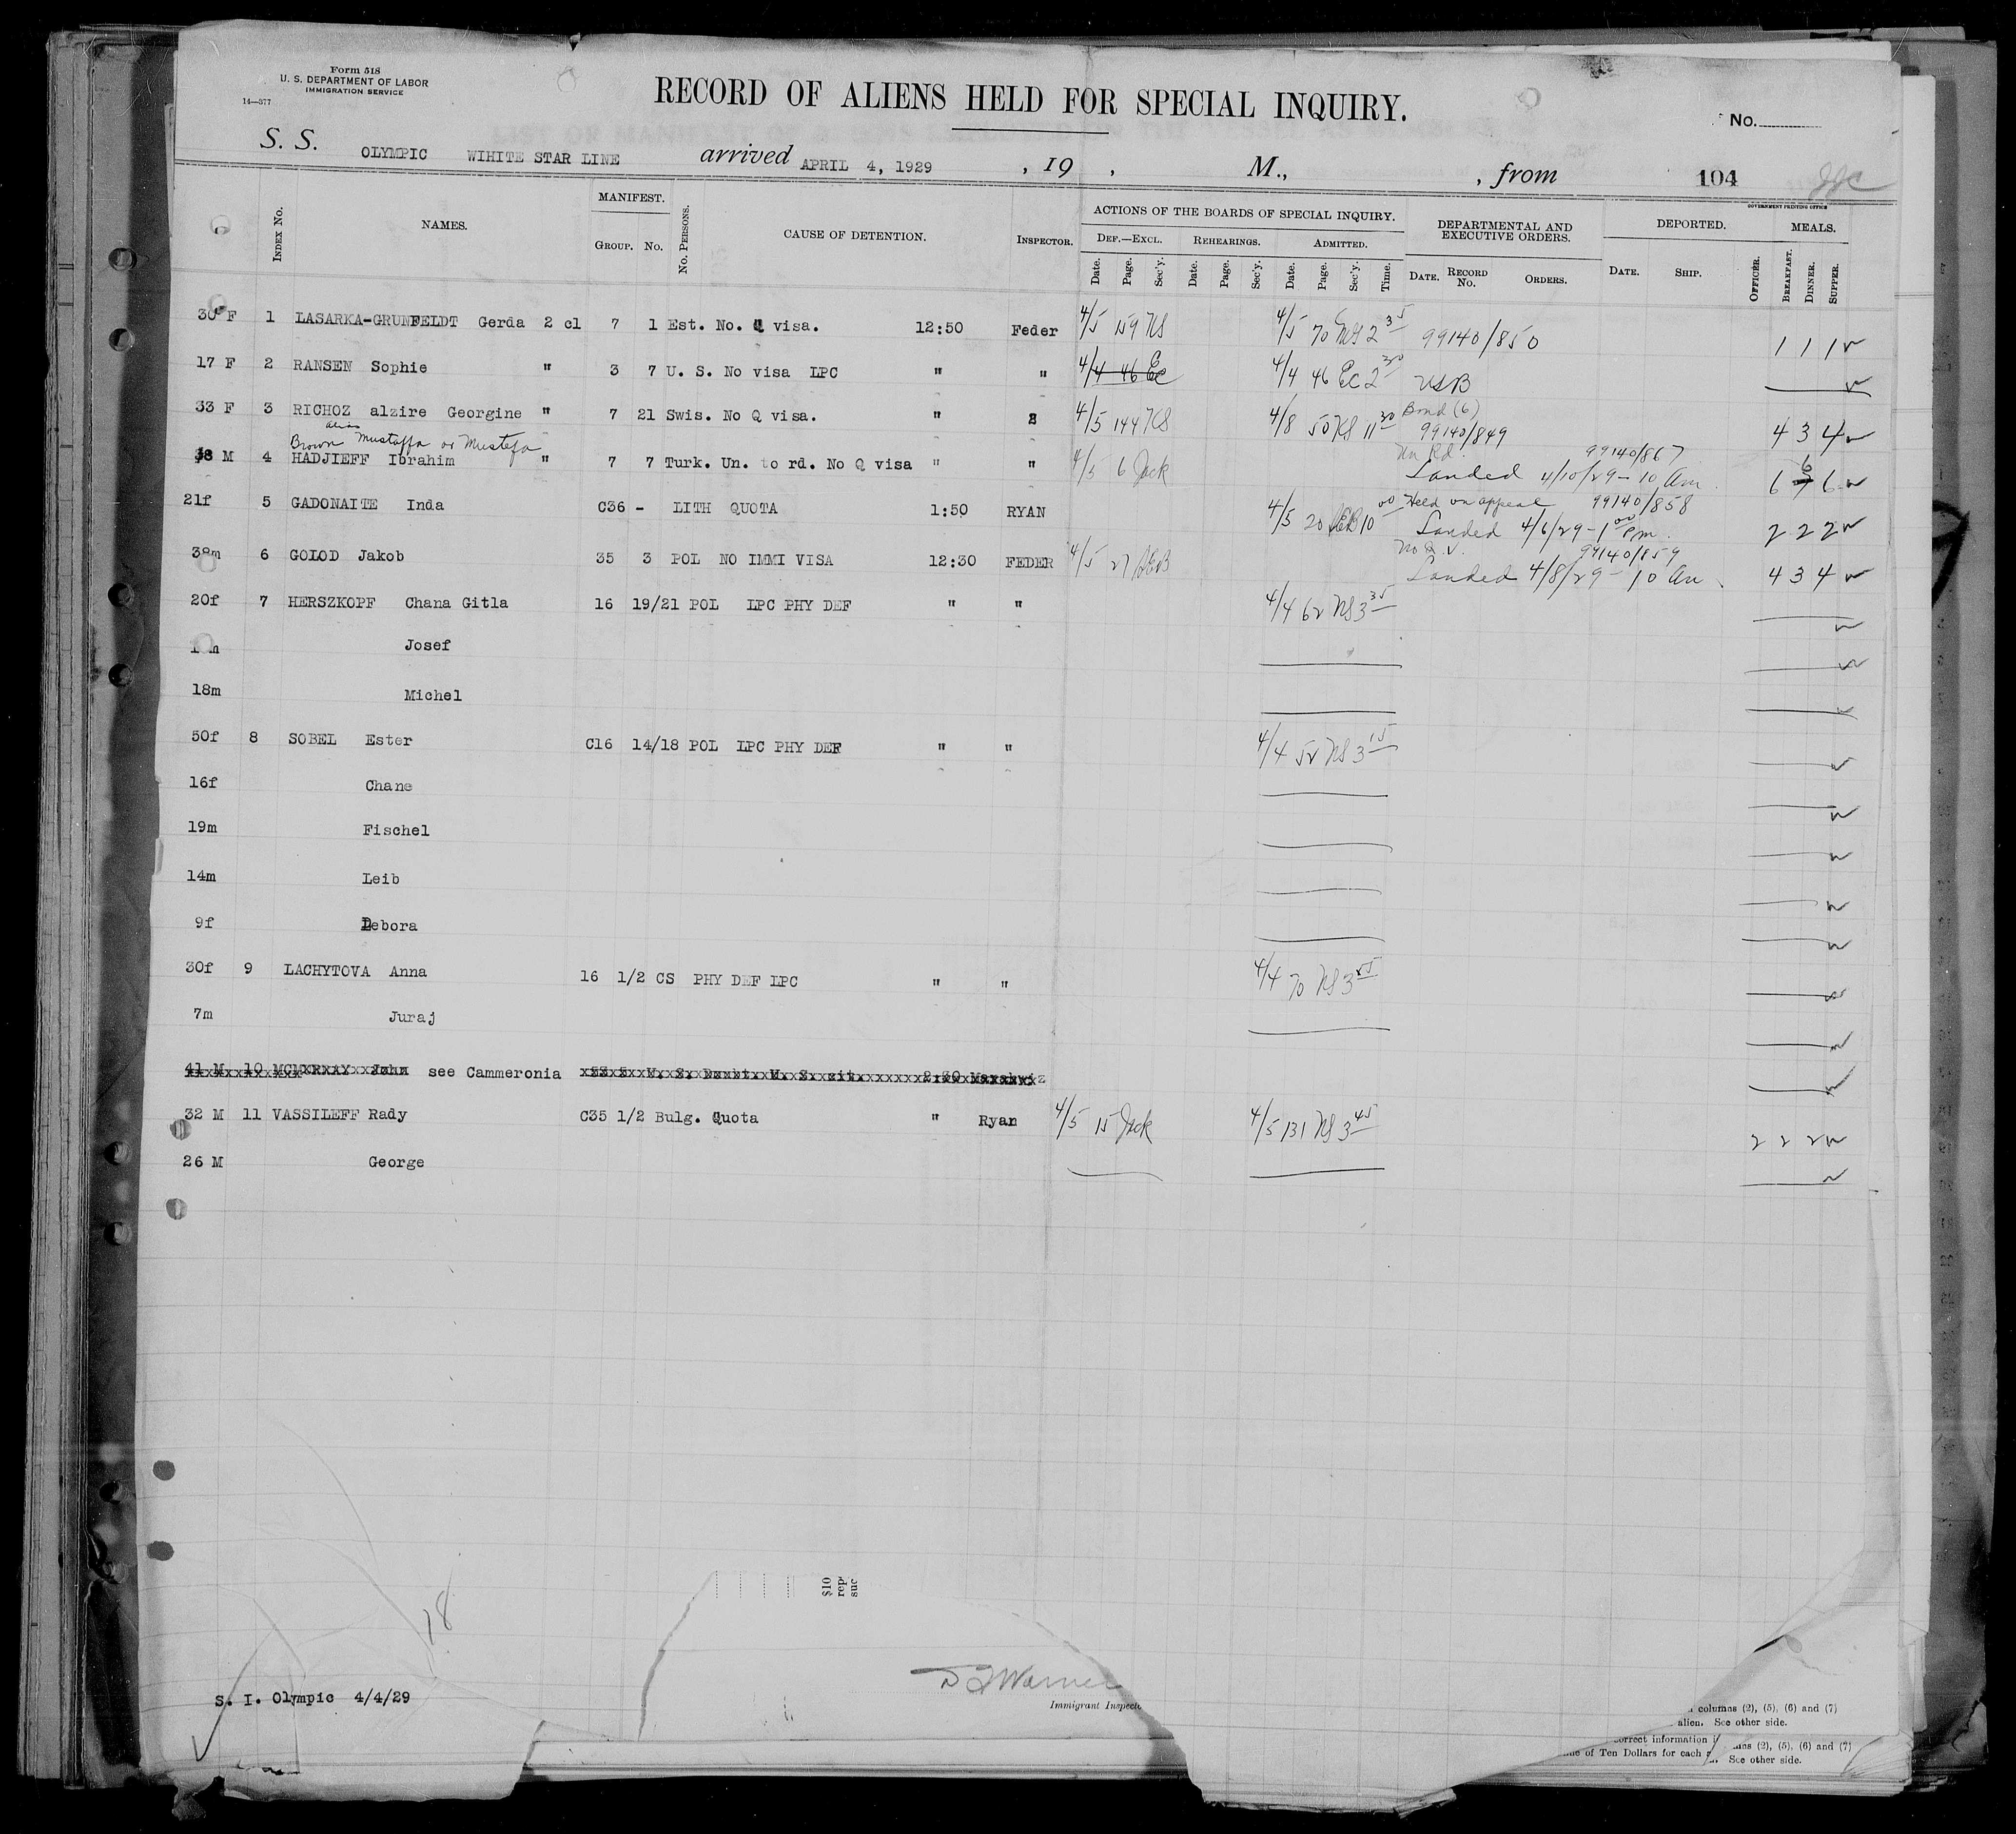 Form 518
U. S. DEPARTMENT OF LABOR
IMMIGRATION SERVICE
14—377
RECORD OF ALIENS HELD FOR SPECIAL INQUIRY.
No.
S. S. OLYMPIC WIHITE STAR LINE arrived APRIL 4, 1929 , 19 , M., , from 104
GOVERNMENT PRINTING OFFICE
INDEX No. NAMES. MANIFEST. GROUP. No. No. PERSONS. CAUSE OF DETENTION. INSPECTOR. ACTIONS OF THE BOARDS OF SPECIAL INQUIRY. DEPARTMENTAL AND EXECUTIVE ORDERS. DEPORTED. MEALS.
DEF.—EXCL. REHEARINGS. ADMITTED.
Date. Page. Sec'y. Date. Page. Sec'y. Date. Page. Sec'y. Time. DATE. RECORD No. ORDERS. DATE. SHIP. OFFICER. BREAKFAST. DINNER. SUPPER.
30 F 1 LASARKA-GRUNFELDT Gerda 2 cl 7 1 Est. No. Q visa. 12:50 Feder 4/5 159 NS 4/5 70 2 35 99140/850 1 1 1
17 F 2 RANSEN Sophie " 3 7 U. S. No visa LPC " " 4/4 46 EC 4/4 46 EC 2 30 USB
33 F 3 RICHOZ alzire Georgine " 7 21 Swis. No Q visa. " " 4/5 144 KS 4/8 50 KS 11 30 Bond (6) 99140/849 4 3 4
alias
Brown Mustaffa or Mustefa
38 M 4 HADJIEFF Ibrahim " 7 7 Turk. Un. to rd. No Q visa " " 4/5 6 Jack Un Rd. 99140/867 Landed 4/10/29 - 10 Am. 6 6 6
21f 5 GADONAITE Inda C36 - LITH QUOTA 1:50 RYAN 4/5 20 AEB 10 00 Held on appeal 99140/858 Landed 4/6/29 - 1 00 Pm. 2 2 2
38m 6 GOLOD Jakob 35 3 POL NO IMMI VISA 12:30 FEDER 4/5 27 AEB No Q. V. 99140/859 Landed 4/8/29 - 10 Am 4 3 4
20f 7 HERSZKOPF Chana Gitla 16 19/21 POL LPC PHY DEF " " 4/4 62 NS 3 35
Josef
18m Michel
50f 8 SOBEL Ester C16 14/18 POL LPC PHY DEF " " 4/4 52 NS 3 15
16f Chane
19m Fischel
14m Leib
9f Debora
30f 9 LACHYTOVA Anna 16 1/2 CS PHY DEF LPC " " 4/4 70 NS 3 55
7m Juraj
41 M 10 MCMXRXAY John see Cammeronia
32 M 11 VASSILEFF Rady C35 1/2 Bulg. Quota " Ryan 4/5 15 Jack 4/5 131 NS 3 45 2 2 2
26 M George
$10
rep
suc
18
Immigrant Inspecto
S. I. Olympic 4/4/29
columns (2), (5), (6) and (7)
alien. See other side.
correct information
(2), (5), (6) and (7)
of Ten Dollars for each
See other side.